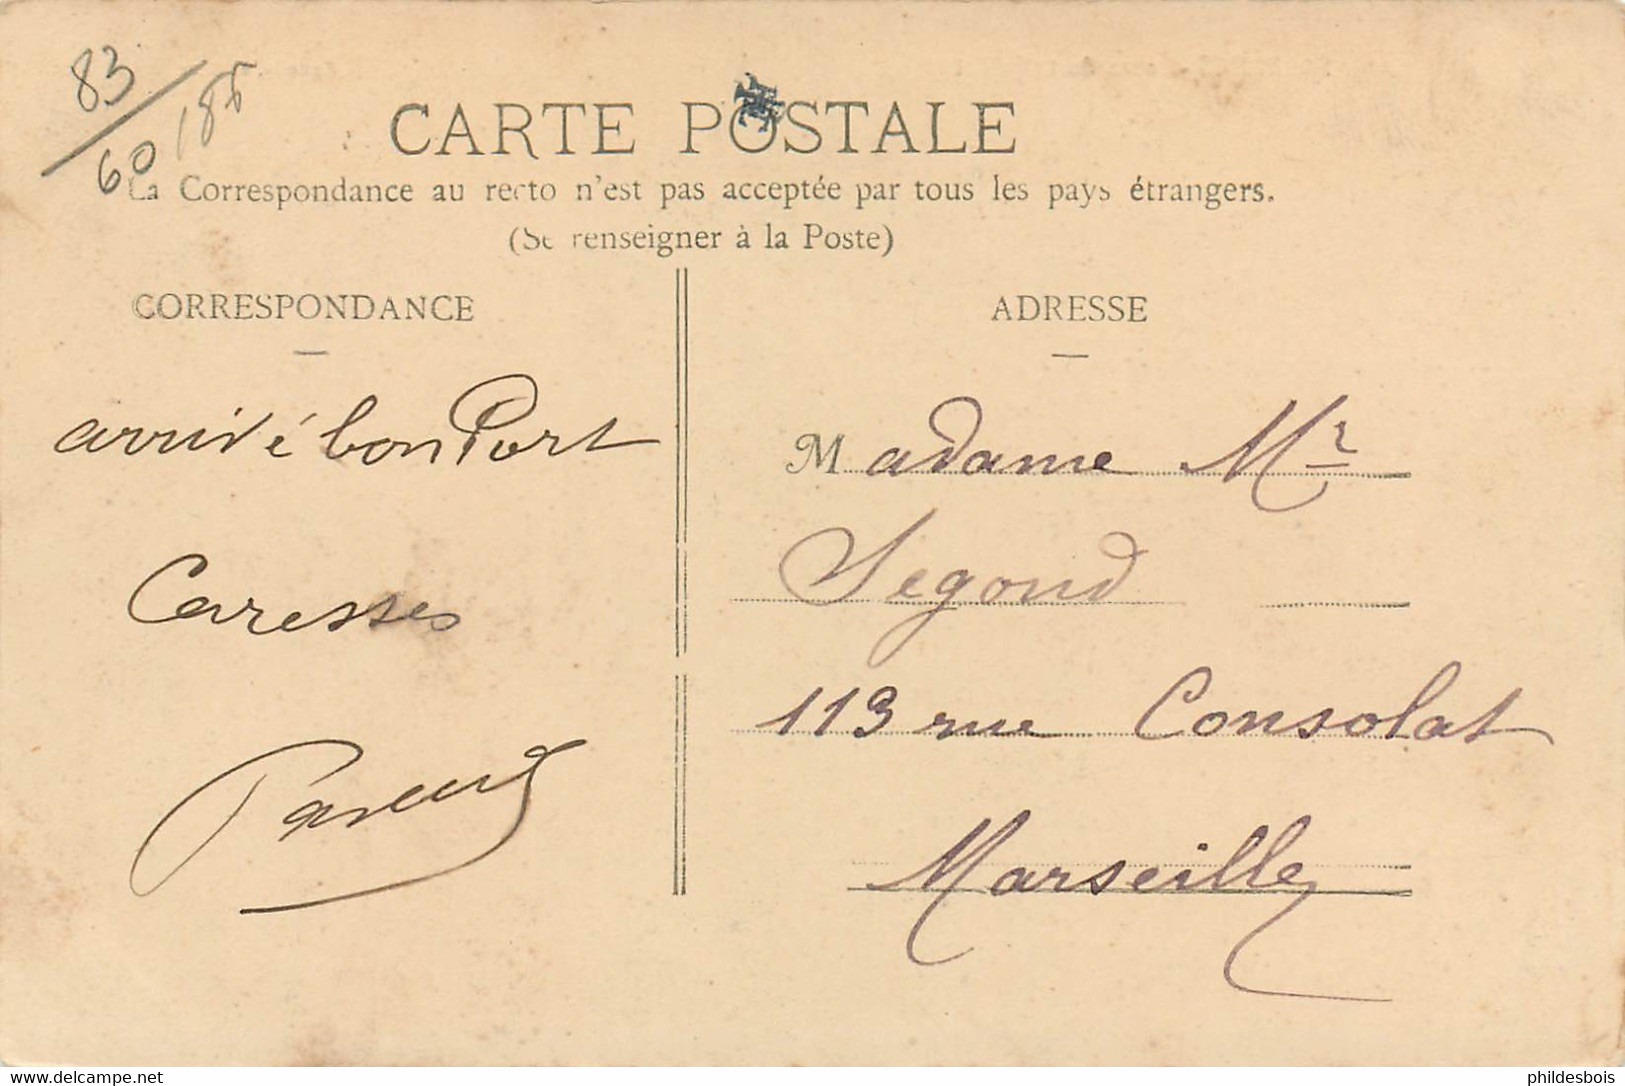 83
60 185
CARTE POSTALE
La Correspondance au recto n'est pas acceptée par tous les pays étrangers.
(Se renseigner à la Poste)
CORRESPONDANCE
arrivé bon Port
Caresses
ADRESSE
Madame Mr
Segond
113 rue Consolat
Marseille
www.delcampe.net
phildesbois